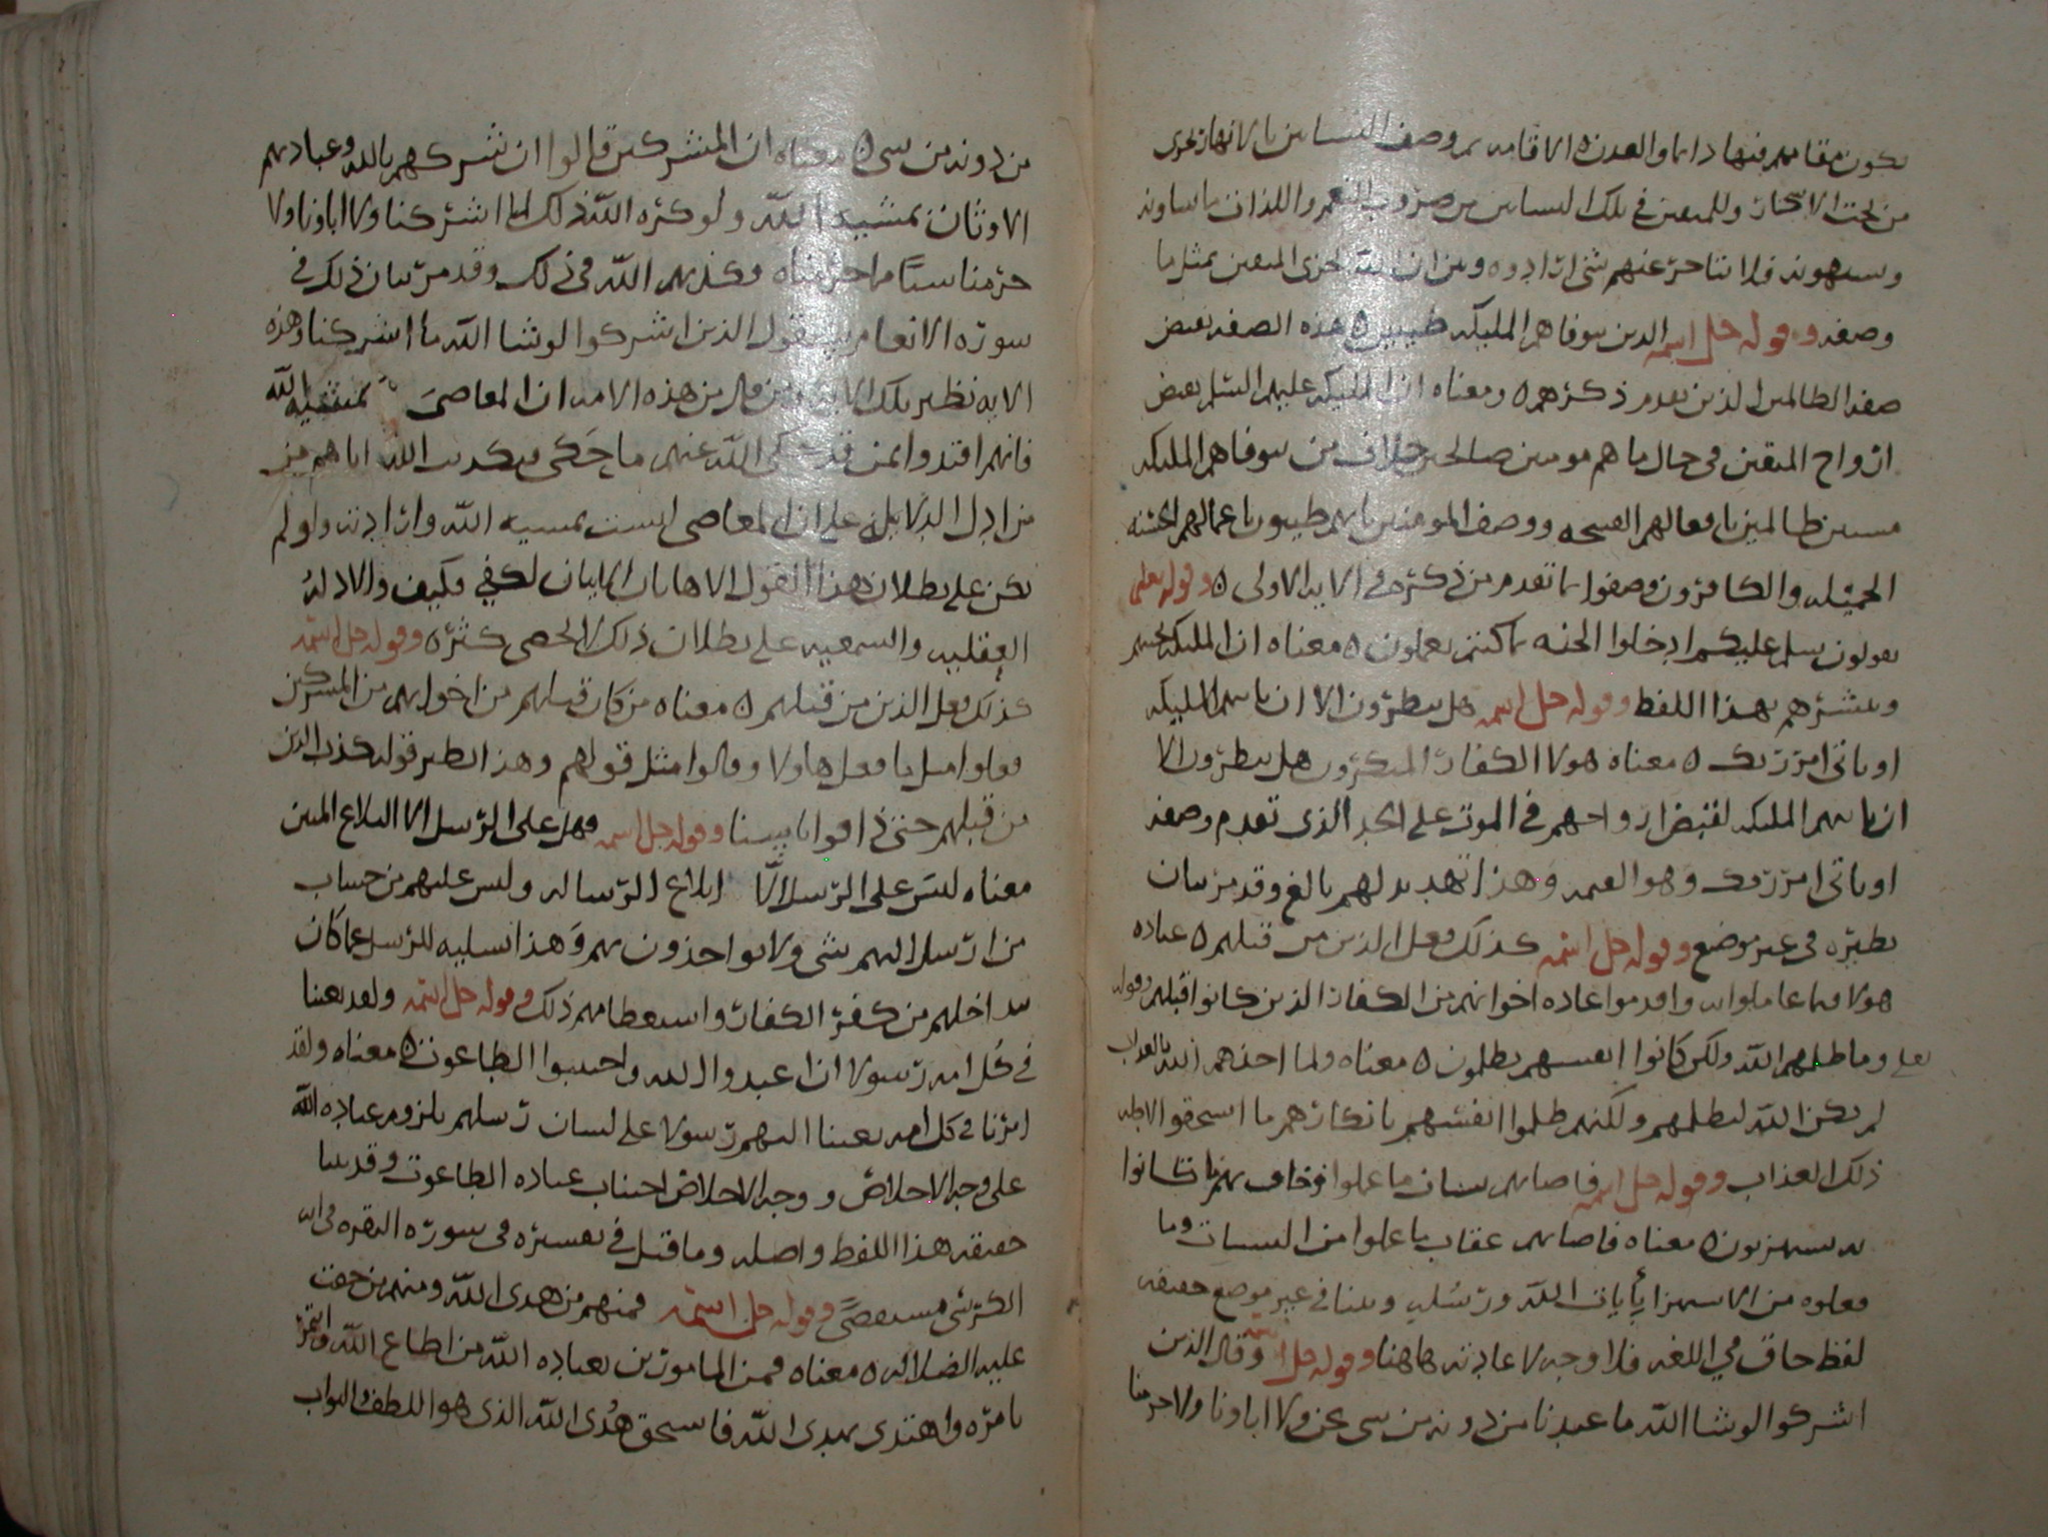 يكون مقامهم فيها دائما والعدن الاقامه ثم وصف البساتين بالانهار تجرى
من تحت الاشجار وللمتقين في تلك البساتين من ضروب النعم واللذات ما يشاونه
ويشتهونه فلا يتاخر عنهم شى ارادوه وبين ان الله يجزى المتقين بمثل ما
وصفه وقوله جل اسمه الذين تتوفاهم المليكه طيبين هذه الصفه نقيض
صفه الظالمين الذين تقدم ذكرهم ومعناه ان المليكه عليهم السلم تقبض
ارواح المتقين في حال ما هم مومنين صالحين خلاف من تتوفاهم المليكه
مسيئين ظالمين بافعالهم القبيحه ووصف المومنين بانهم طيبون باعمالهم الحسنه
الجميله والكافرون وصفوا بما تقدم من ذكره في الايه الاولى وقوله تعلى
يقولون سلم عليكم ادخلوا الجنه بما كنتم تعملون معناه ان المليكه تحييهم
وتبشرهم بهذا اللفظ وقوله جل اسمه هل ينظرون الا ان ياتيهم المليكه
او ياتى امر ربك معناه هولا الكفار المنكرون هل ينظرون الا
ان ياتيهم المليكه لقبض ارواحهم في الموت على الحد الذى تقدم وصفه
او ياتى امر ربك وهو القيمه وهذا تهديد لهم بالغ وقد مر بيان
نظيره في غير موضع وقوله جل اسمه كذلك فعل الذين من قبلهم عباده
هولا فيما عاملوا به واقدموا عاده اخوانهم من الكفار الذين كانوا قبلهم وقوله
تعلى وما ظلمهم الله ولكن كانوا انفسهم يظلمون معناه ولما اخذهم الله بالعذاب
لم يكن الله ليظلمهم ولكنهم ظلموا انفسهم بانكارهم ما استحقوا لاجله
ذلك العذاب وقوله جل اسمه فاصابهم سيات ما عملوا وحاق بهم ما كانوا
به يستهزون معناه فاصابهم عقاب ما عملوا من السيات وما
فعلوه من الاستهزا بأيات الله ورسله وبينا في غير موضع حقيقه
لفظ حاق في اللغه فلا وجه لاعادته هاهنا وقوله جل اسمه وقال الذين
اشركوا لو شا الله ما عبدنا من دونه من شى نحن ولا اباونا ولا حرمنا
من دونه من شى معناه ان المشركين قالوا ان شركهم بالله وعبادتهم
الاوثان بمشيه الله ولو كره الله ذلك لما اشركنا ولا اباونا ولا
حرمنا شياً مما حرمناه وكذبهم الله في ذلك وقد مر بيان ذلك في
سوره الانعام سيقول الذين اشركوا لو شا الله ما اشركنا وهذه
الايه نظير تلك الايه ومن قال من هذه الامه ان المعاصى بمشيه الله
فانهم اقتدوا بمن قد حكى الله عنهم ما حكى وتكذيب الله اياهم من
من ادل الدلايل على ان المعاصى ليست بمشيه الله وارادته ولو لم
تكن على بطلان هذا القول الا هاتان الايتان لكفى فكيف والادله
العقليه والسمعيه على بطلان ذلك لا تحصى كثره وقوله جل اسمه
كذلك فعل الذين من قبلهم معناه من كان قبلهم من اخوانهم من المشركين
فعلوا مثل ما فعل هاولا وقالوا مثل قولهم وهذا نظير قوله كذب الذين
من قبلهم حتى ذاقوا باسنا وقوله جل اسمه فهل على الرسل الا البلاغ المبين
معناه ليس على الرسل الا ابلاغ الرساله وليس عليهم من حساب
من ارسل اليهم شى ولا يواخذون بهم وهذا تسليه للرسل عما كان
يداخلهم من كفر الكفار واستعظامهم ذلك وقوله جل اسمه ولقد بعثنا
في كل امه رسولا ان اعبدوا الله واجتنبوا الطاغوت معناه ولقد
امرنا في كل امه بعثنا اليهم رسولا على لسان رسلهم بلزوم عباده الله
على وجه الاخلاص ووجه الاخلاص اجتناب عباده الطاغوت وقد بينا
حقيقه هذا اللفظ واصله وما قيل في تفسيره في سوره البقره في ايه
الكرسى مستقصىً وقوله جل اسمه فمنهم من هدى الله ومنهم من حقت
عليه الضلاله معناه فمن المامورين بعباده الله من اطاع الله وائتمر
بامره واهتدى بهدى الله فاستحق هُدى الله الذى هو اللطف والثواب